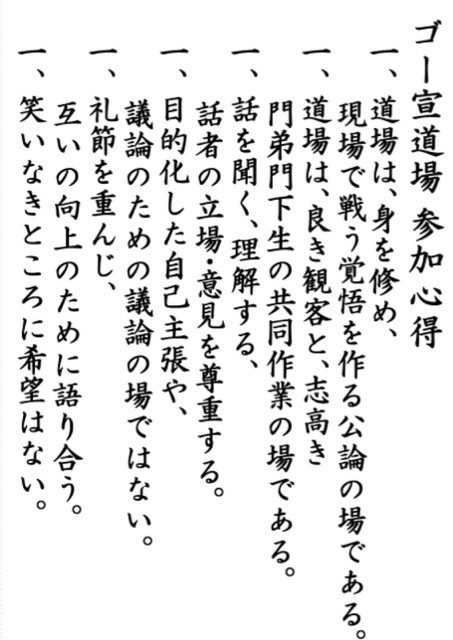 ゴー宣道場 参加心得
一、道場は、身を修め、
現場で戦う覚悟を作る公論の場である。
一、道場は、良き観客と、志高き
門弟門下生の共同作業の場である。
一、話を聞く、理解する、
話者の立場・意見を尊重する。
一、目的化した自己主張や、
議論のための議論の場ではない。
一、礼節を重んじ、
互いの向上のために語り合う。
一、笑いなきところに希望はない。